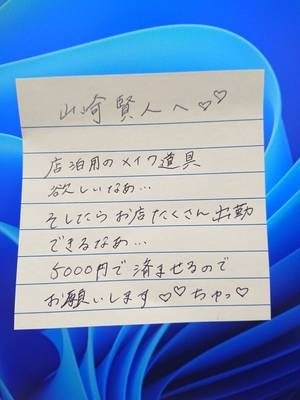 山崎賢人へ♡♡
店泊用のメイク道具
欲しいなぁ…
そしたらお店たくさん出勤
できるなぁ…
5000円で済ませるので
お願いします♡♡ちゅっ♡